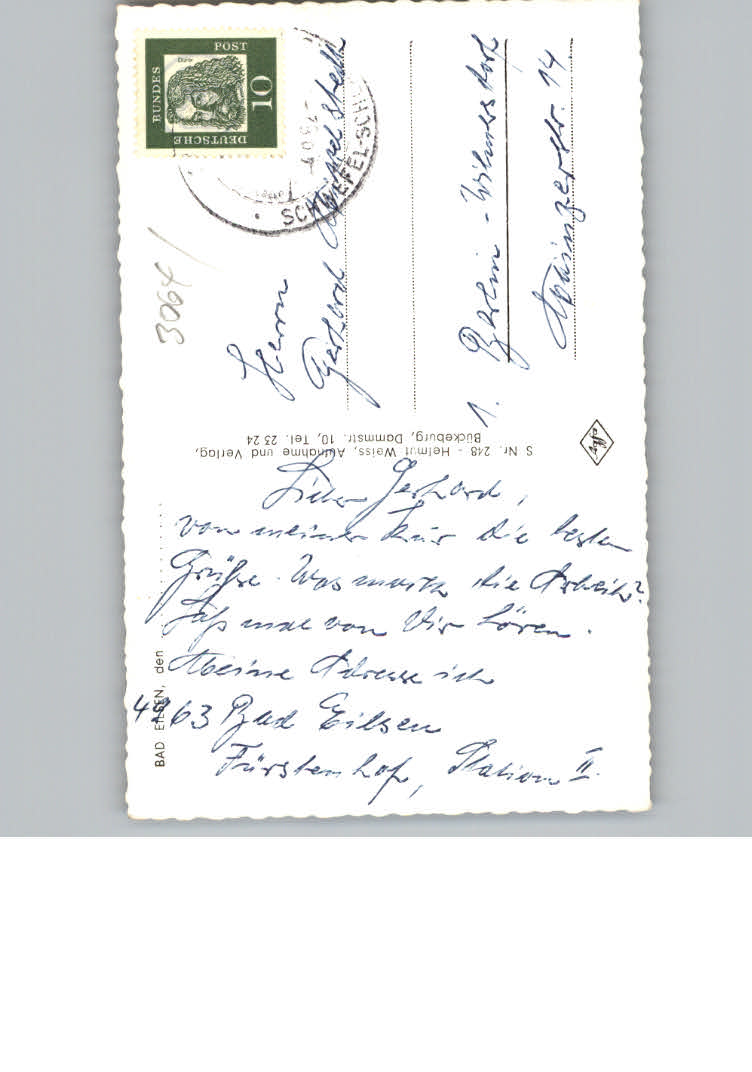 DEUTSCHE
BUNDES
POST
10
SCHWEFEL-SCH
3064
Herrn
Gerhard
1. Berlin-Wilmersdorf
Mainzerstr. 14
S Nr. 248 - Helmut Weiss, Aufnahme und Verlag,
Bückeburg, Dammstr. 10, Tel. 23 24
Agfa
BAD EILSEN, den
Lieber Gerhard,
von meiner Kur die besten
Grüße. Was macht die Arbeit?
Laß mal von Dir hören.
Meine Adresse ist
4963 Bad Eilsen
Fürstenhof, Station II.